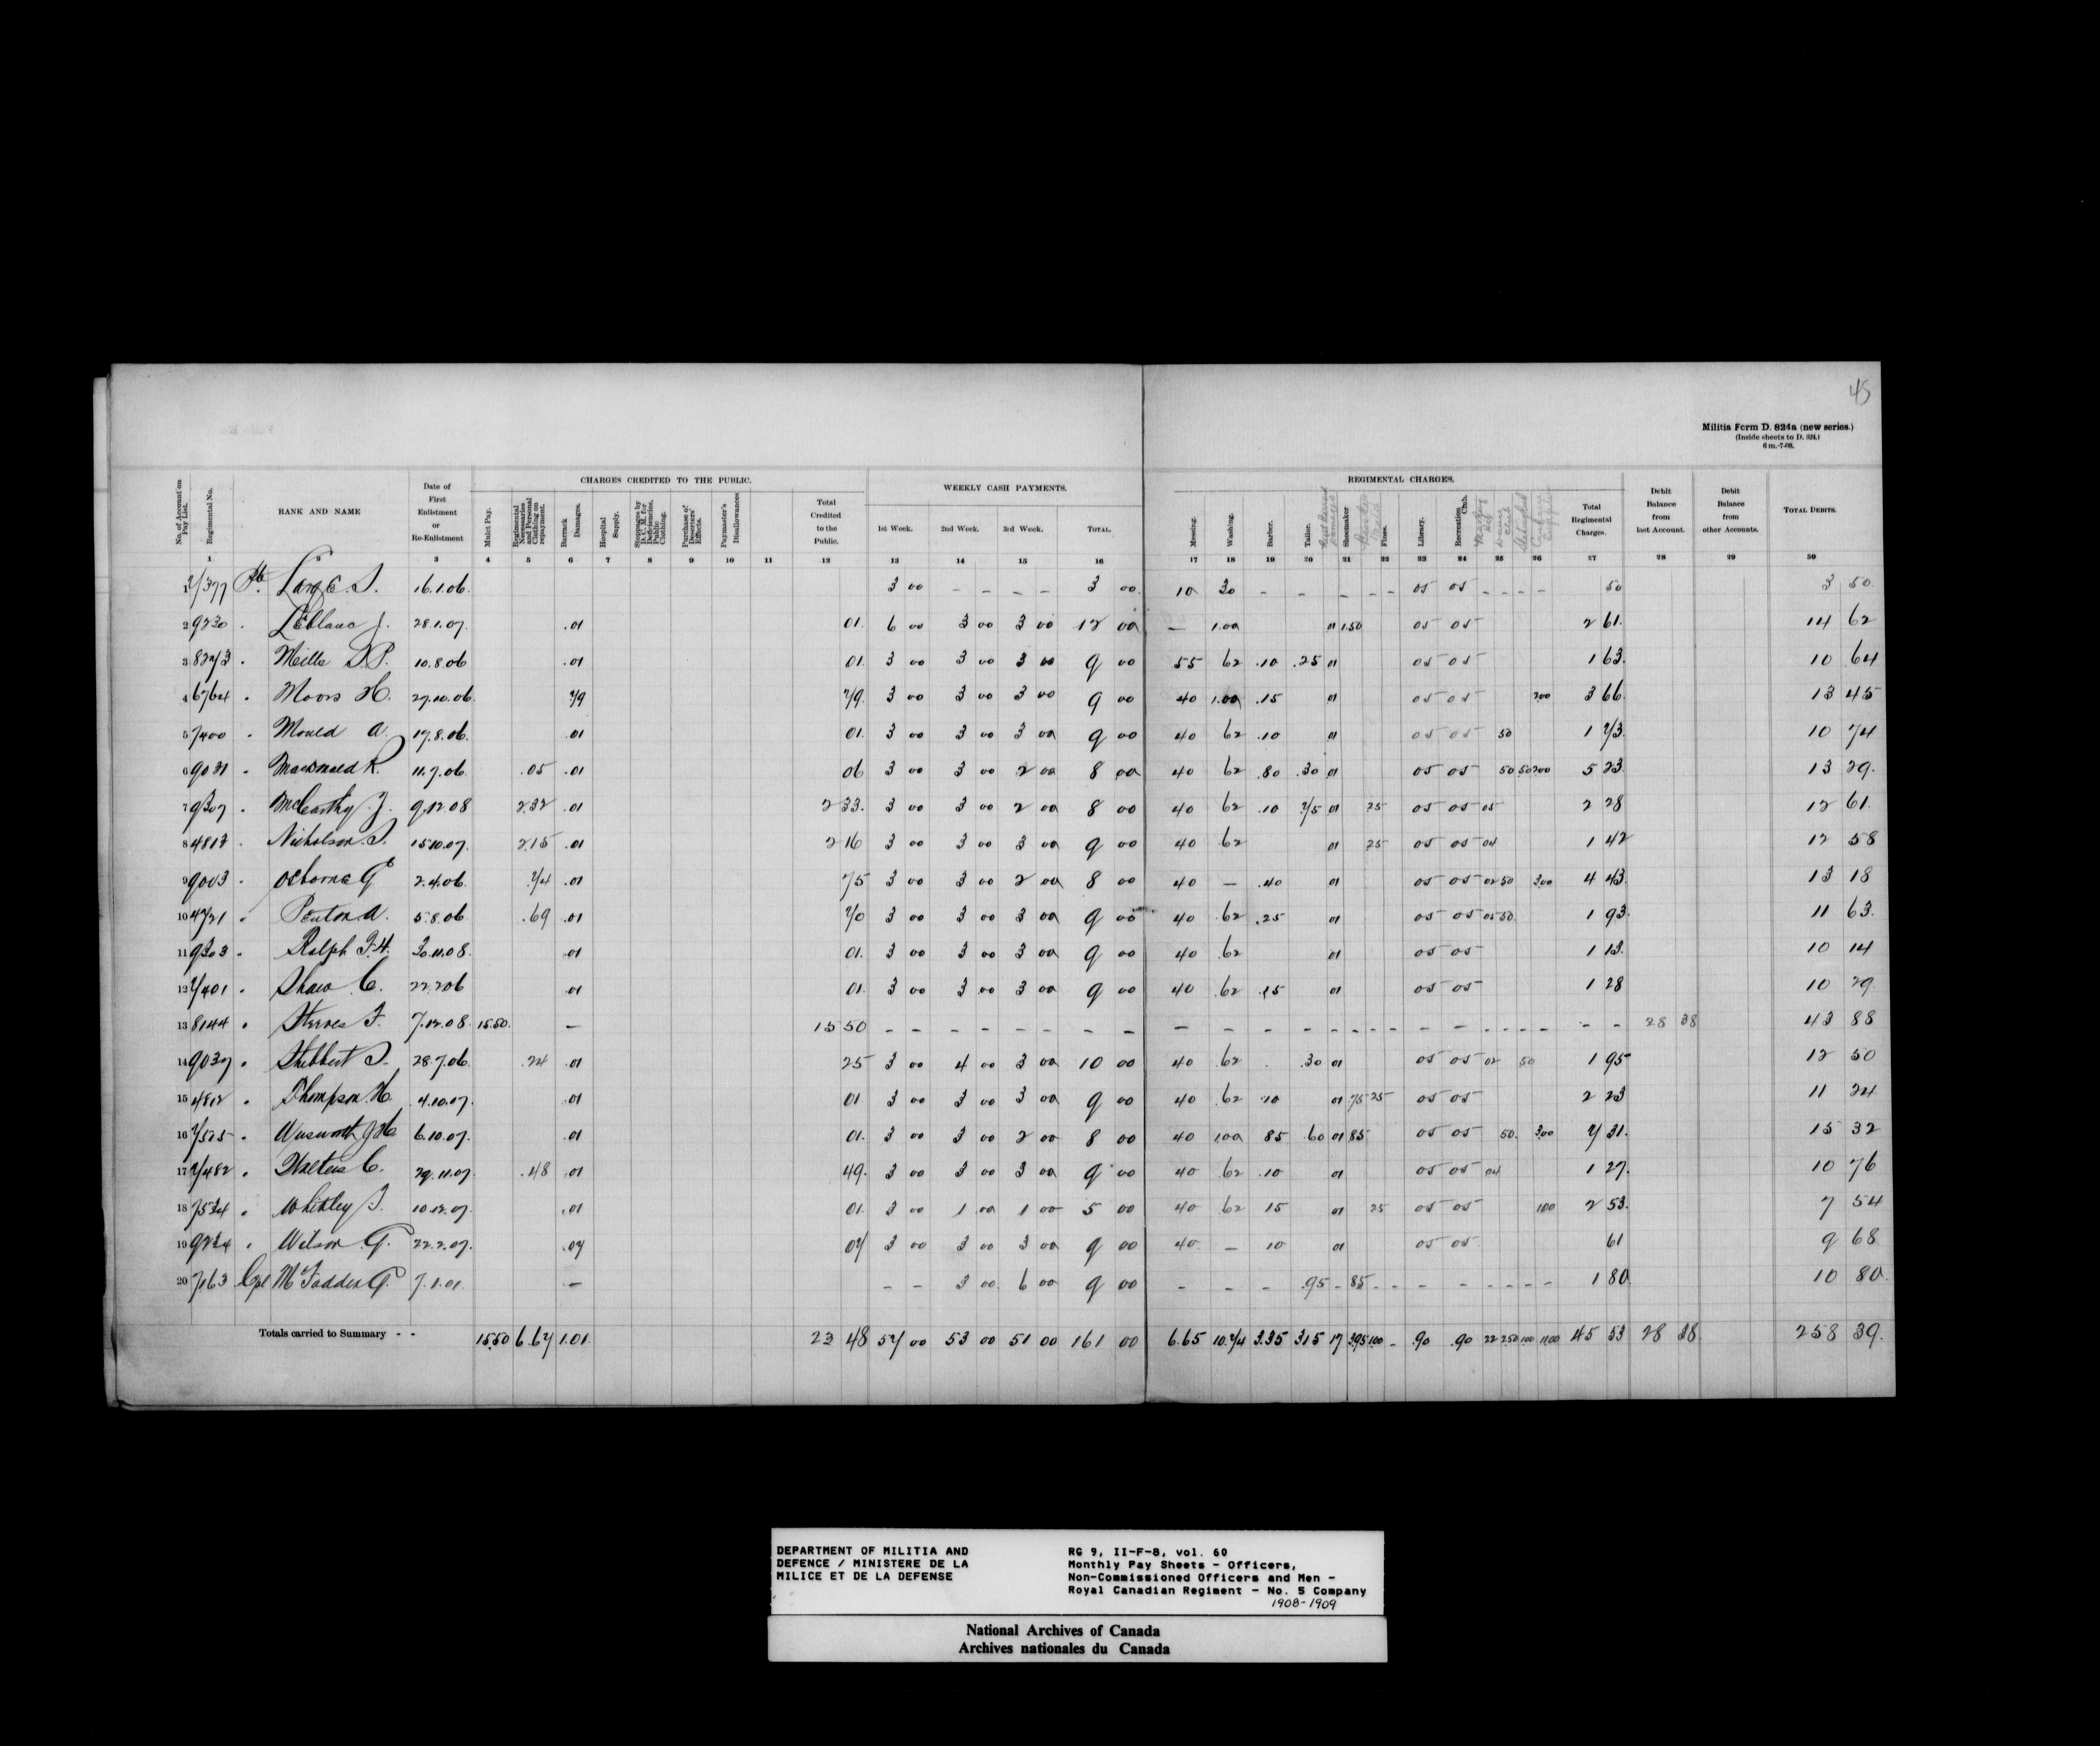 45
Militia Form D. 824a (new series.)
(Inside sheets to D. 824.)
6 m.-7-08.
CHARGES CREDITED TO THE PUBLIC. WEEKLY CASH PAYMENTS. REGIMENTAL CHARGES.
No. of Account on Pay List. Regimental No. RANK AND NAME Date of First Enlistment or Re-Enlistment Mulct Pay. Regimental Necessaries and Personal Clothing on repayment. Barrack Damages. Hospital Supply. Stoppages by D.C.M. for Deficiencies, Public Clothing. Purchase of Deserters' Effects. Paymaster's Disallowances Total Credited to the Public. 1st Week. 2nd Week. 3rd Week. TOTAL. Messing. Washing. Barber. Tailor. Shoemaker Fines. Library. Recreation Club. Total Regimental Charges. Debit Balance from last Account. Debit Balance from other Accounts. TOTAL DEBITS.
1 3 4 5 6 7 8 9 10 11 12 13 14 15 16 17 18 19 20 21 22 23 24 25 26 27 28 29 30
1 7377 Pte. Large S. 16.1.06. 3 00 - - - - 3 00 10 30 - - - - - 05 05 - - - - 50 3 50
2 9230 " Leblanc J. 28.1.07. .01 01. 6 00 3 00 3 00 12 00 — 1.00 01 1.50 05 05 2 61. 14 62
3 8273 " Mills S.P. 10.8.06 .01 01. 3 00 3 00 3 00 9 00 55 62 .10 .25 01 05 05 1 63. 10 64
4 6764 " Moors H. 27.10.06. 79 79. 3 00 3 00 3 00 9 00 40 1.00 .15 01 05 05 2.00 3 66. 13 45
5 7400 " Mould A. 17.8.06. .01 01. 3 00 3 00 3 00 9 00 40 62 .10 01 05 05 50 1 73. 10 74
6 9021 " MacDonald R. 11.7.06. .05 .01 06 3 00 3 00 2 00 8 00 40 62 .80 .30 01 05 05 50 50 200 5 23. 13 29.
7 9307 " McCarthy J. 9.12.08 2.32 .01 2 33. 3 00 3 00 2 00 8 00 40 62 .10 75 01 25 05 05 05 2 28 12 61.
8 4812 " Nicholson S. 15.10.07. 2.15 .01 2 16 3 00 3 00 3 00 9 00 40 .62 01 25 05 05 04 1 42 12 58
9 9003 " Osborne G 2.4.06. .74 .01 75 3 00 3 00 2 00 8 00 40 — .40 01 05 05 02 50 3.00 4 43. 13 18
10 4721 " Penton A. 5.8.06 .69 .01 70 3 00 3 00 3 00 9 00 40 .62 .25 01 05 05 05 50 1 93. 11 63.
11 9303 " Ralph F.H. 30.11.08. .01 01. 3 00 3 00 3 00 9 00 40 .62 01 05 05 1 13. 10 14
12 7401 " Shaw C. 22.2.06 .01 01. 3 00 3 00 3 00 9 00 40 .62 .15 01 05 05 1 28 10 29.
13 8144 " Steeves F. 7.12.08. 15.50. — 15 50 - - - - - - - - - - - - - - - - - - - - - - - - 28 38 43 88
14 9037 " Stibbert S. 28.7.06. .24 .01 25 3 00 4 00 3 00 10 00 40 .62 . .30 01 05 05 02 50 1 95 12 50
15 4812 " Thompson H. 4.10.07. .01 01 3 00 3 00 3 00 9 00 40 .62 .10 01 75 25 05 05 2 23 11 24
16 7525 " 6.10.07. .01 01. 3 00 3 00 2 00 8 00 40 1.00 85 .60 01 85 05 05 50. 3.00 7 31. 15 32
17 7482 " Walters C. 29.11.07. .48 .01 49. 3 00 3 00 3 00 9 00 40 .62 .10 01 05 05 04 1 27. 10 76
18 7534 " Whitley J. 10.12.07. .01 01. 3 00 1 00 1 00 5 00 40 .62 15 01 25 05 05 100 2 53. 7 54
19 9234 " Wilson G. 22.2.07. .07 07 3 00 3 00 3 00 9 00 40. — 10 01 05 05 61 9 68
20 7163 Cpl McFadden G. 7.1.01. — - - 3 00. 6 00 9 00 - - - .95 - 85 - - - - - - - - 1 80. 10 80.
Totals carried to Summary - - 15.50 6.67 1.01. 23 48 57 00 53 00 51 00 161 00 6.65 10.74 3.35 3.15 17 3.95 1.00 - .90 .90 22 2.50 1.00 11.00 45 53 28 38. 258 39.
DEPARTMENT OF MILITIA AND
DEFENCE / MINISTERE DE LA
MILICE ET DE LA DEFENSE
RG 9, II-F-8, vol. 60
Monthly Pay Sheets - Officers,
Non-Commissioned Officers and Men -
Royal Canadian Regiment - No. 5 Company
1908-1909
National Archives of Canada
Archives nationales du Canada